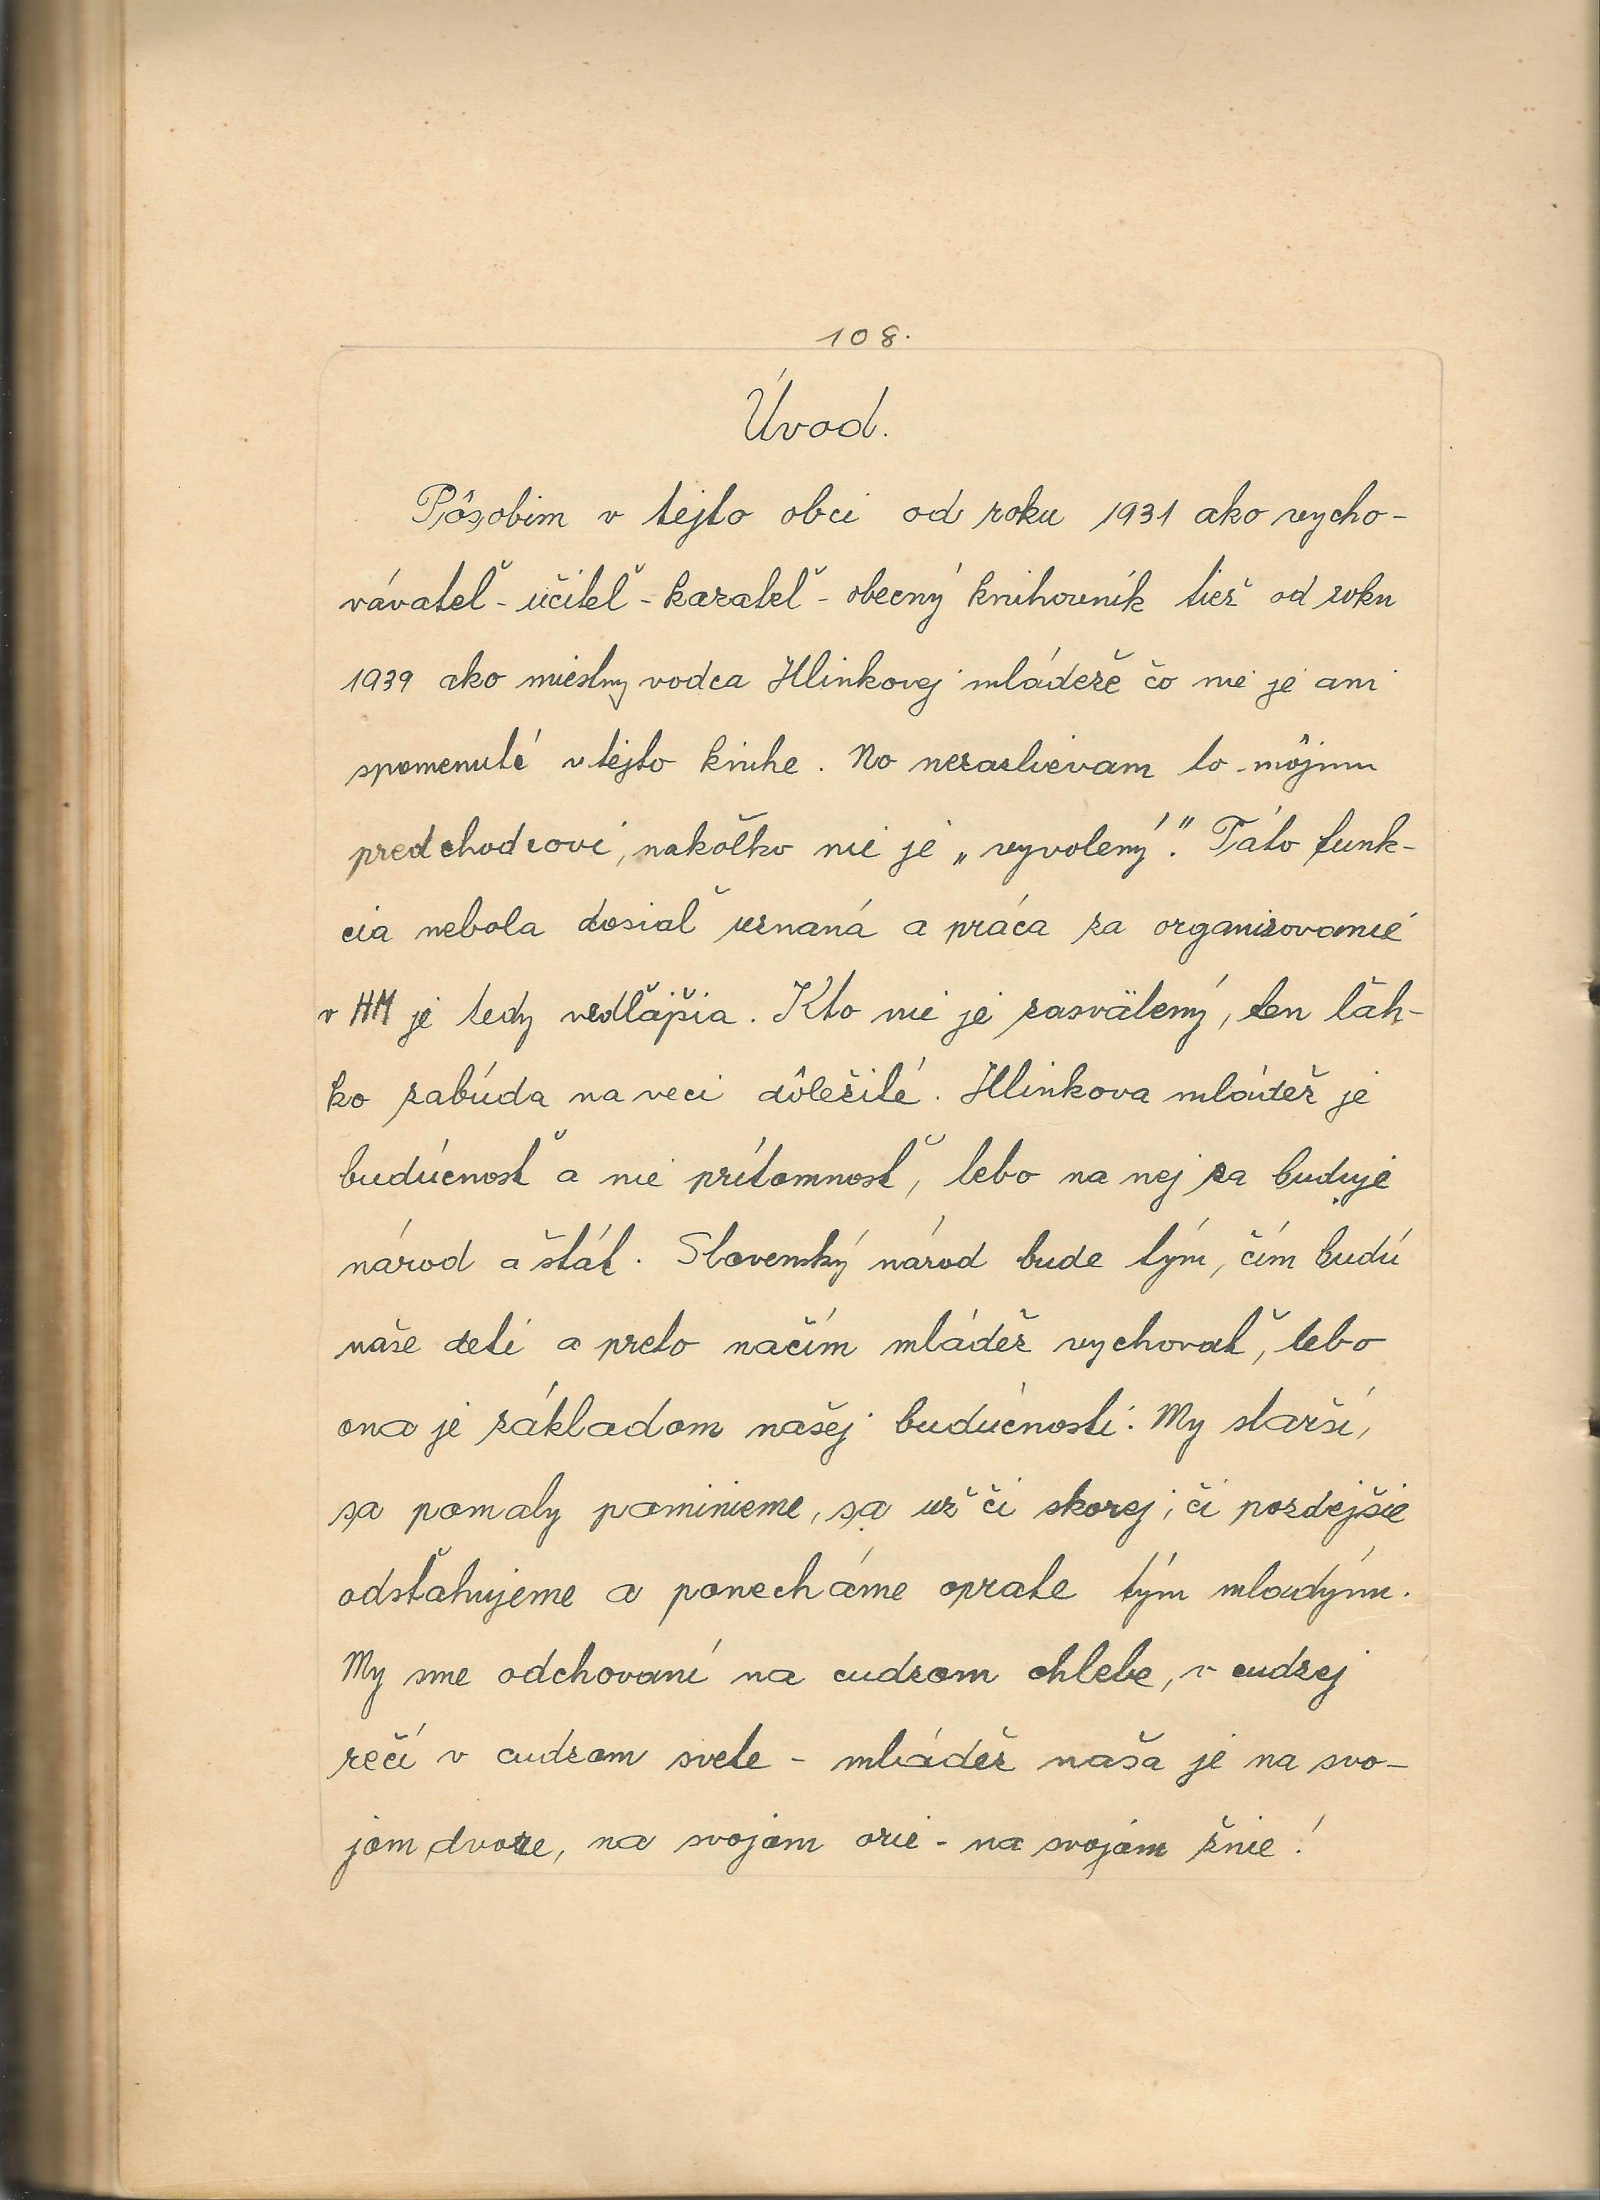 108.
Úvod.
Pôsobim v tejto obci od roku 1931 ako vycho-
vávateľ - učiteľ - kazateľ - obecný knihovník tiež od roku
1939 ako miestny vodca Hlinkovej mládeže čo nie je ani
spomenuté v tejto knihe. No nezazlievam to môjmu
predchodcovi, nakoľko nie je „vyvolený". Táto funk-
cia nebola dosiaľ uznaná a práca za organizovanie
v HM je tedy vedľajšia. Kto nie je zasvätený, len ľah-
ko zabúda na veci dôležité. Hlinkova mládež je
budúcnosť a nie prítomnosť, lebo na nej sa buduje
národ a štát. Slovenský národ bude tým, čím budú
naše deti a preto načím mládež vychovať, lebo
ona je základom našej budúcnosti. My starší,
sa pomaly pominieme, sa už či skorej, či pozdejšie
odsťahujeme a ponecháme oprate tým mladým.
My sme odchovaní na cudzom chlebe, v cudzej
reči v cudzom svete - mládež naša je na svo-
jom dvore, na svojom orie - na svojom žnie!